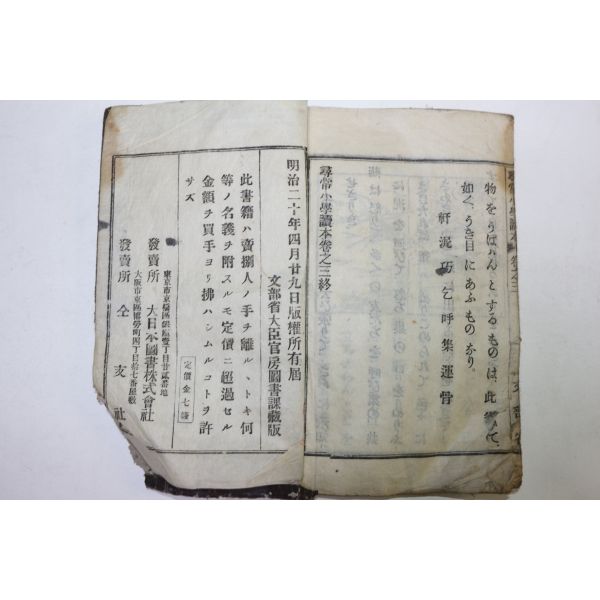 尋常小學讀本卷之三
物をうばはんとするものは、此
如く、うき目にあふものなり。
軒 泥 巧 乞 呼 集 運 骨
尋常小學讀本卷之三終
明治二十年四月廿九日版權所有屆
文部省大臣官房圖書課藏版
此書籍ハ賣捌人ノ手ヲ離ルヽトキ何
等ノ名義ヲ附スルモ定價ニ超過セル
金額ヲ買手ヨリ拂ハシムルコトヲ許
サズ
定價金七錢
東京市京橋區銀座壹丁目廿貳番地
發賣所 大日本圖書株式會社
大阪市東區備後町四丁目拾七番屋敷
發賣所 仝 支 社